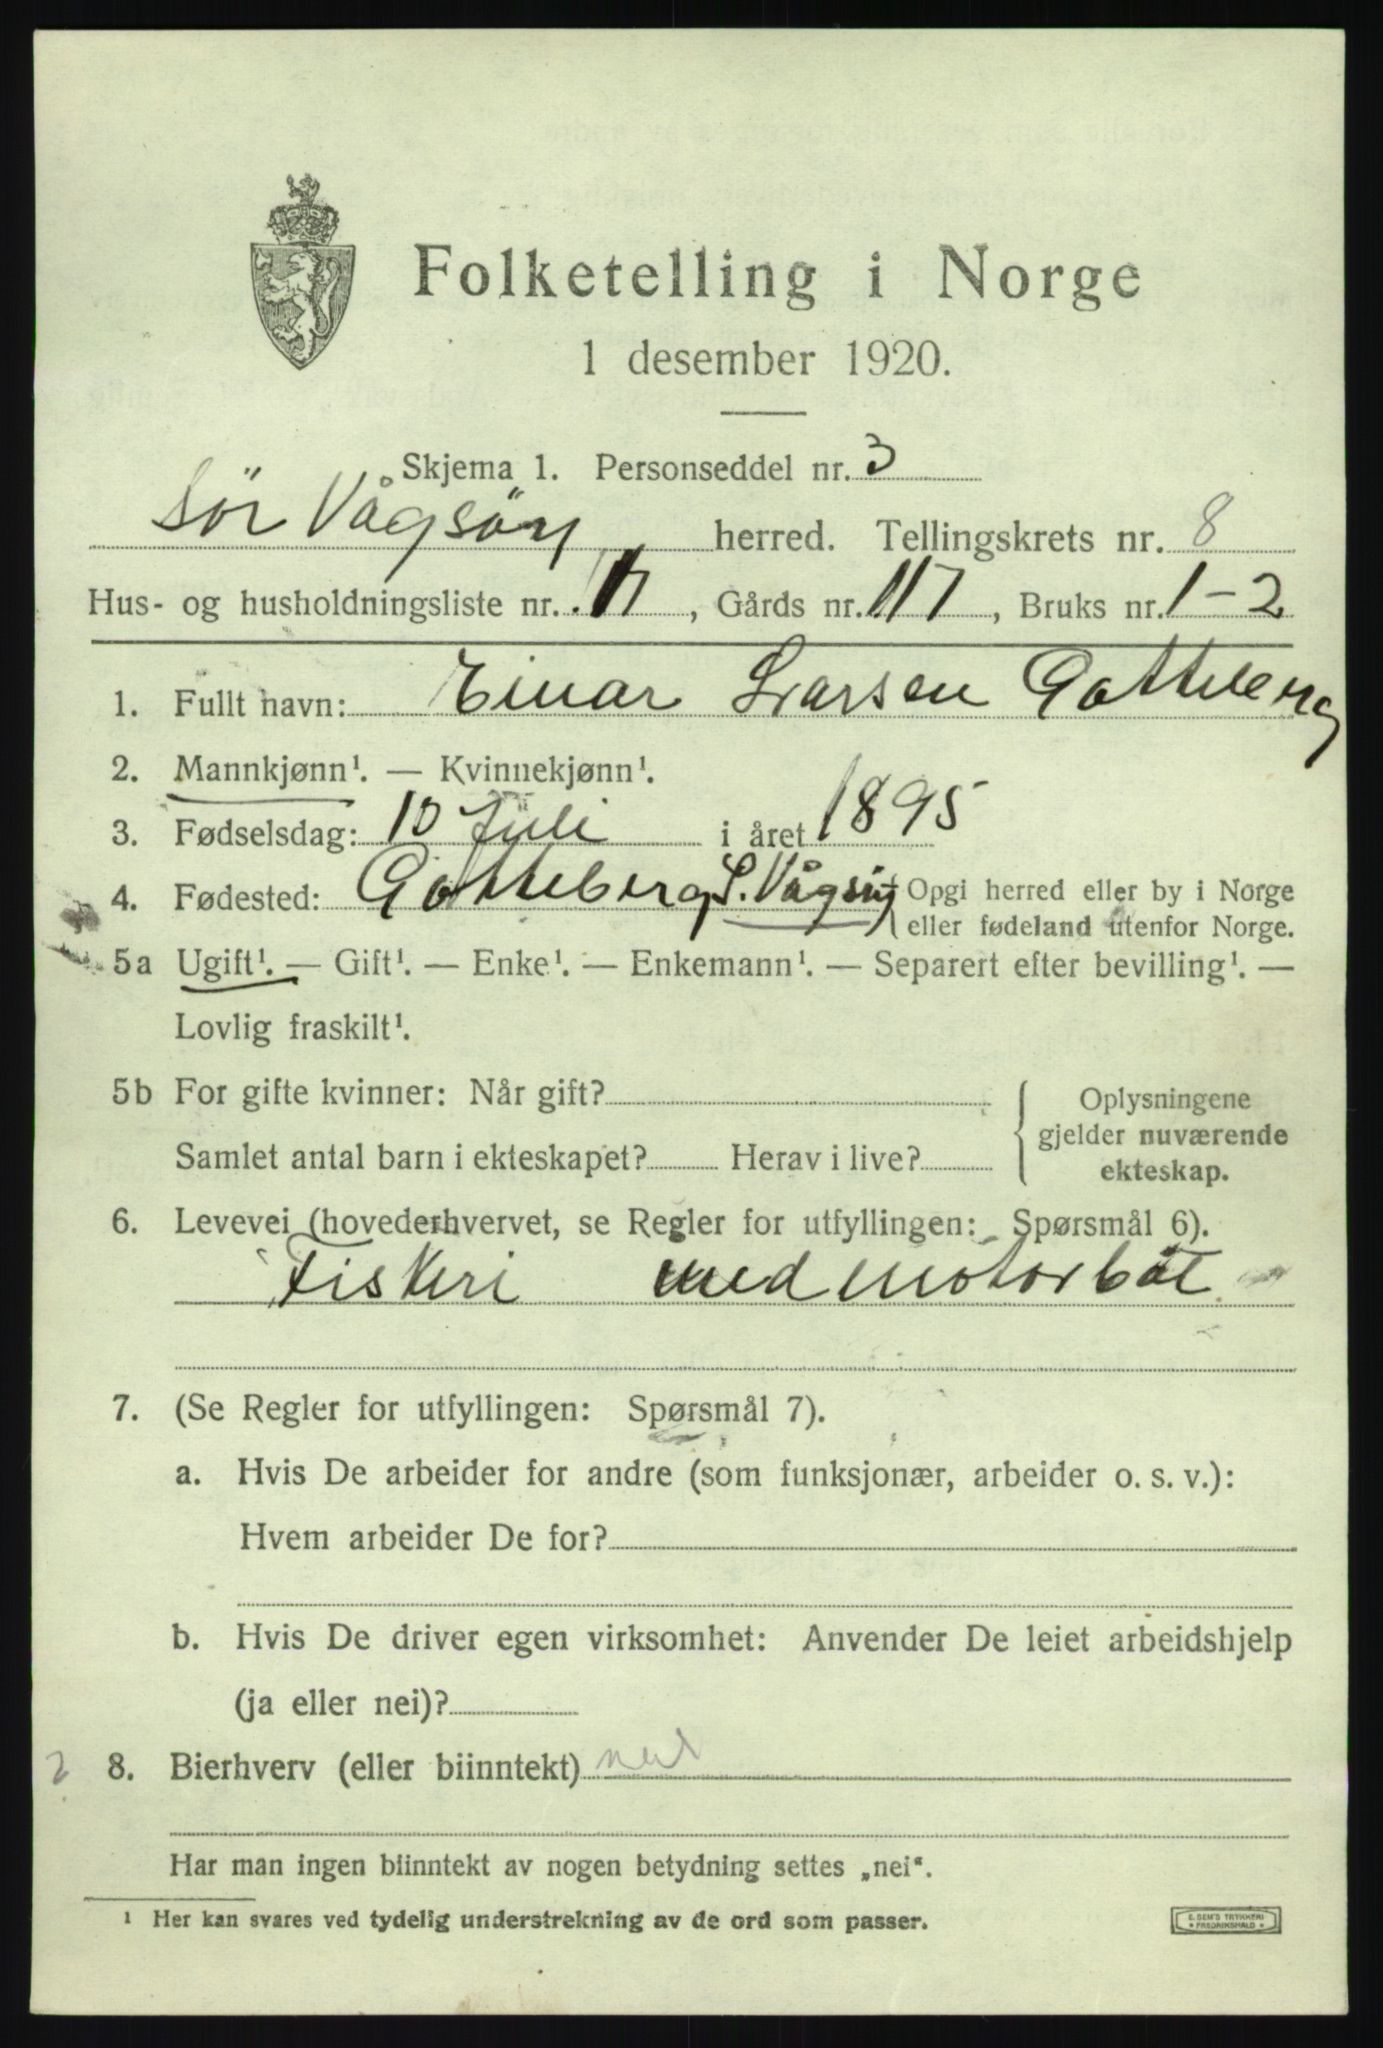 Folketelling i Norge
1 desember 1920.
Skjema 1. Personseddel nr. 3
Sör Vågsöy herred. Tellingskrets nr. 8
Hus- og husholdningsliste nr. , Gårds nr. 117, Bruks nr. 1-2
1. Fullt navn: Einar Larsen Gotteberg
2. Mannkjønn¹. — Kvinnekjønn¹.
3. Fødselsdag: 10 Juli i året 1895
4. Fødested: Gotteberg S. Vågsöy { Opgi herred eller by i Norge
eller fødeland utenfor Norge.
5a Ugift¹. — Gift¹. — Enke¹. — Enkemann¹. — Separert efter bevilling¹. —
Lovlig fraskilt¹.
5b For gifte kvinner: Når gift?
Samlet antal barn i ekteskapet? Herav i live?
Oplysningene
gjelder nuværende
ekteskap.
6. Levevei (hovederhvervet, se Regler for utfyllingen: Spørsmål 6).
Fiskeri med motorbåt
7. (Se Regler for utfyllingen: Spørsmål 7).
a. Hvis De arbeider for andre (som funksjonær, arbeider o. s. v.):
Hvem arbeider De for?
b. Hvis De driver egen virksomhet: Anvender De leiet arbeidshjelp
(ja eller nei)?
2 8. Bierhverv (eller biinntekt) nei
Har man ingen biinntekt av nogen betydning settes „nei“.
¹ Her kan svares ved tydelig understrekning av de ord som passer.
E. SEM'S TRYKKERI
FREDRIKSHALD